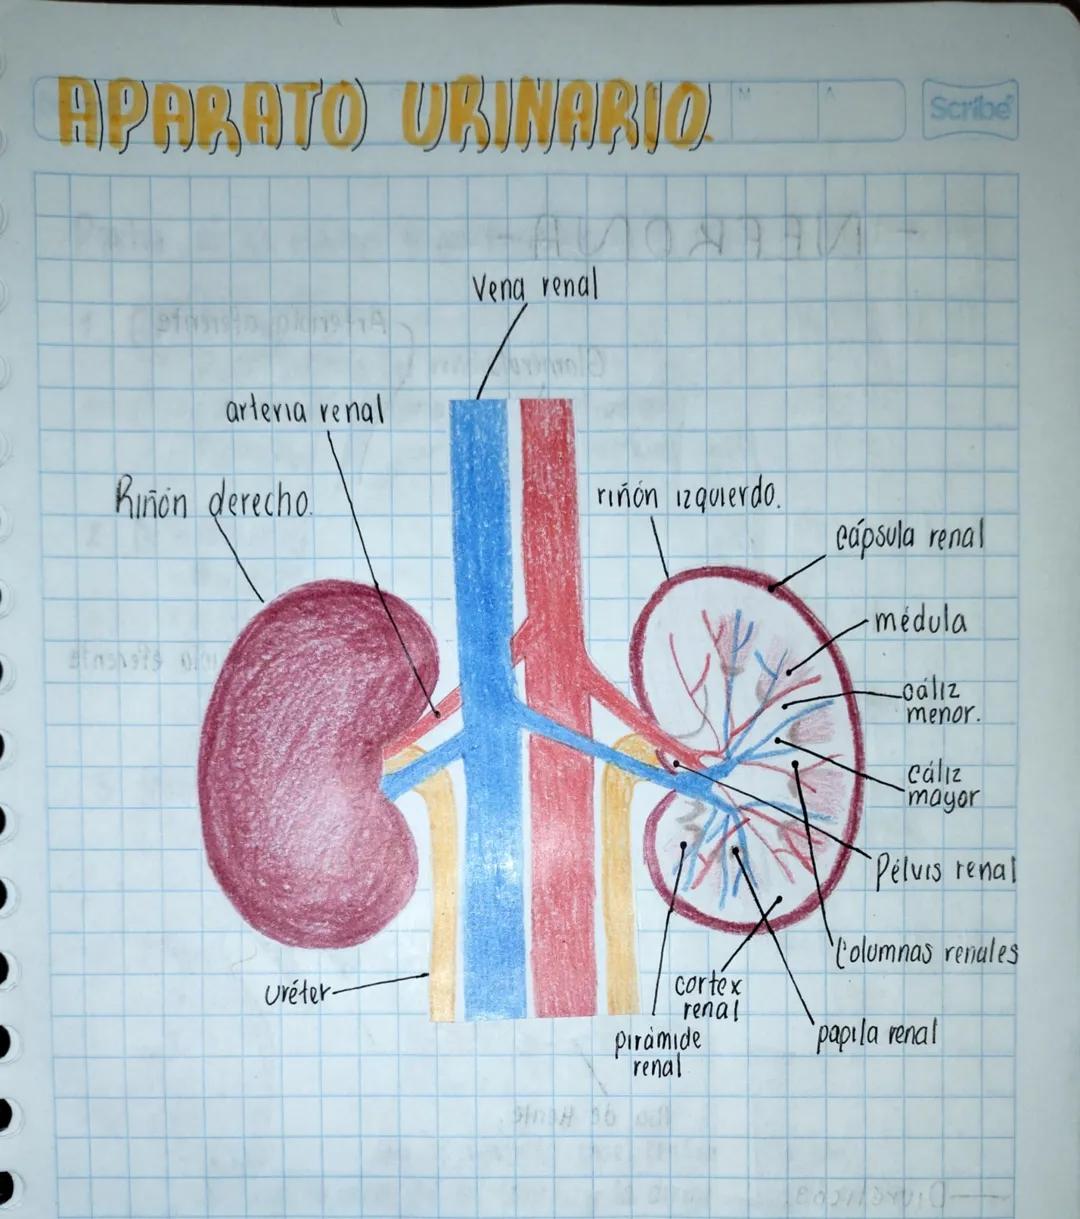 APARATO URINARIO.
Scribe
Vena renal
arteria renal
Riñón derecho.
riñón izquierdo.
cápsula renal
médula
cáliz
menor.
cáliz
mayor
Pélvis renal
Columnas renales
uréter
cortex
renal
pirámide
renal
papila renal